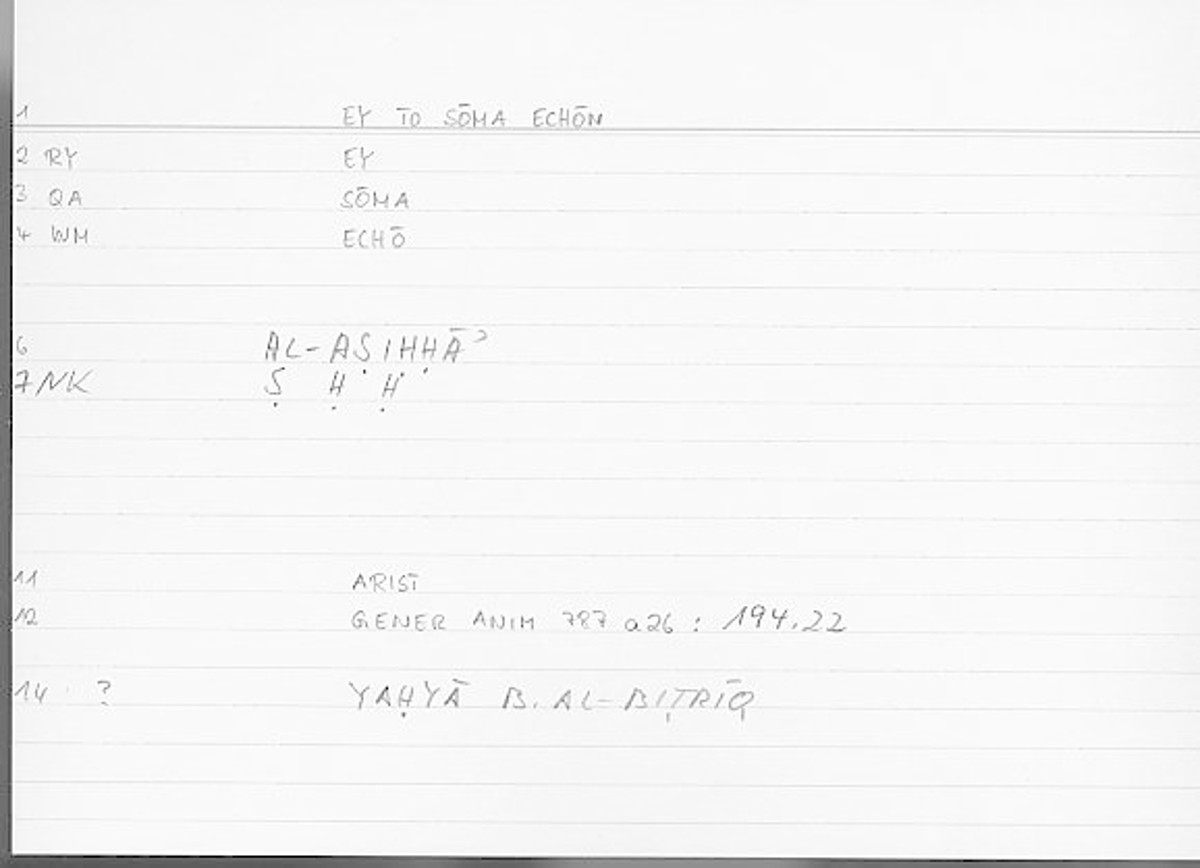 1 EY TO SŌMA ECHŌN
2 RY EY
3 QA SŌMA
4 WM ECHŌ
6 AL-AṢIḤḤĀʾ
7 NK Ṣ Ḥ Ḥ
11 ARIST
12 GENER ANIM 787 a26 : 194.22
14 ? YAḤYĀ B. AL-BIṬRĪQ